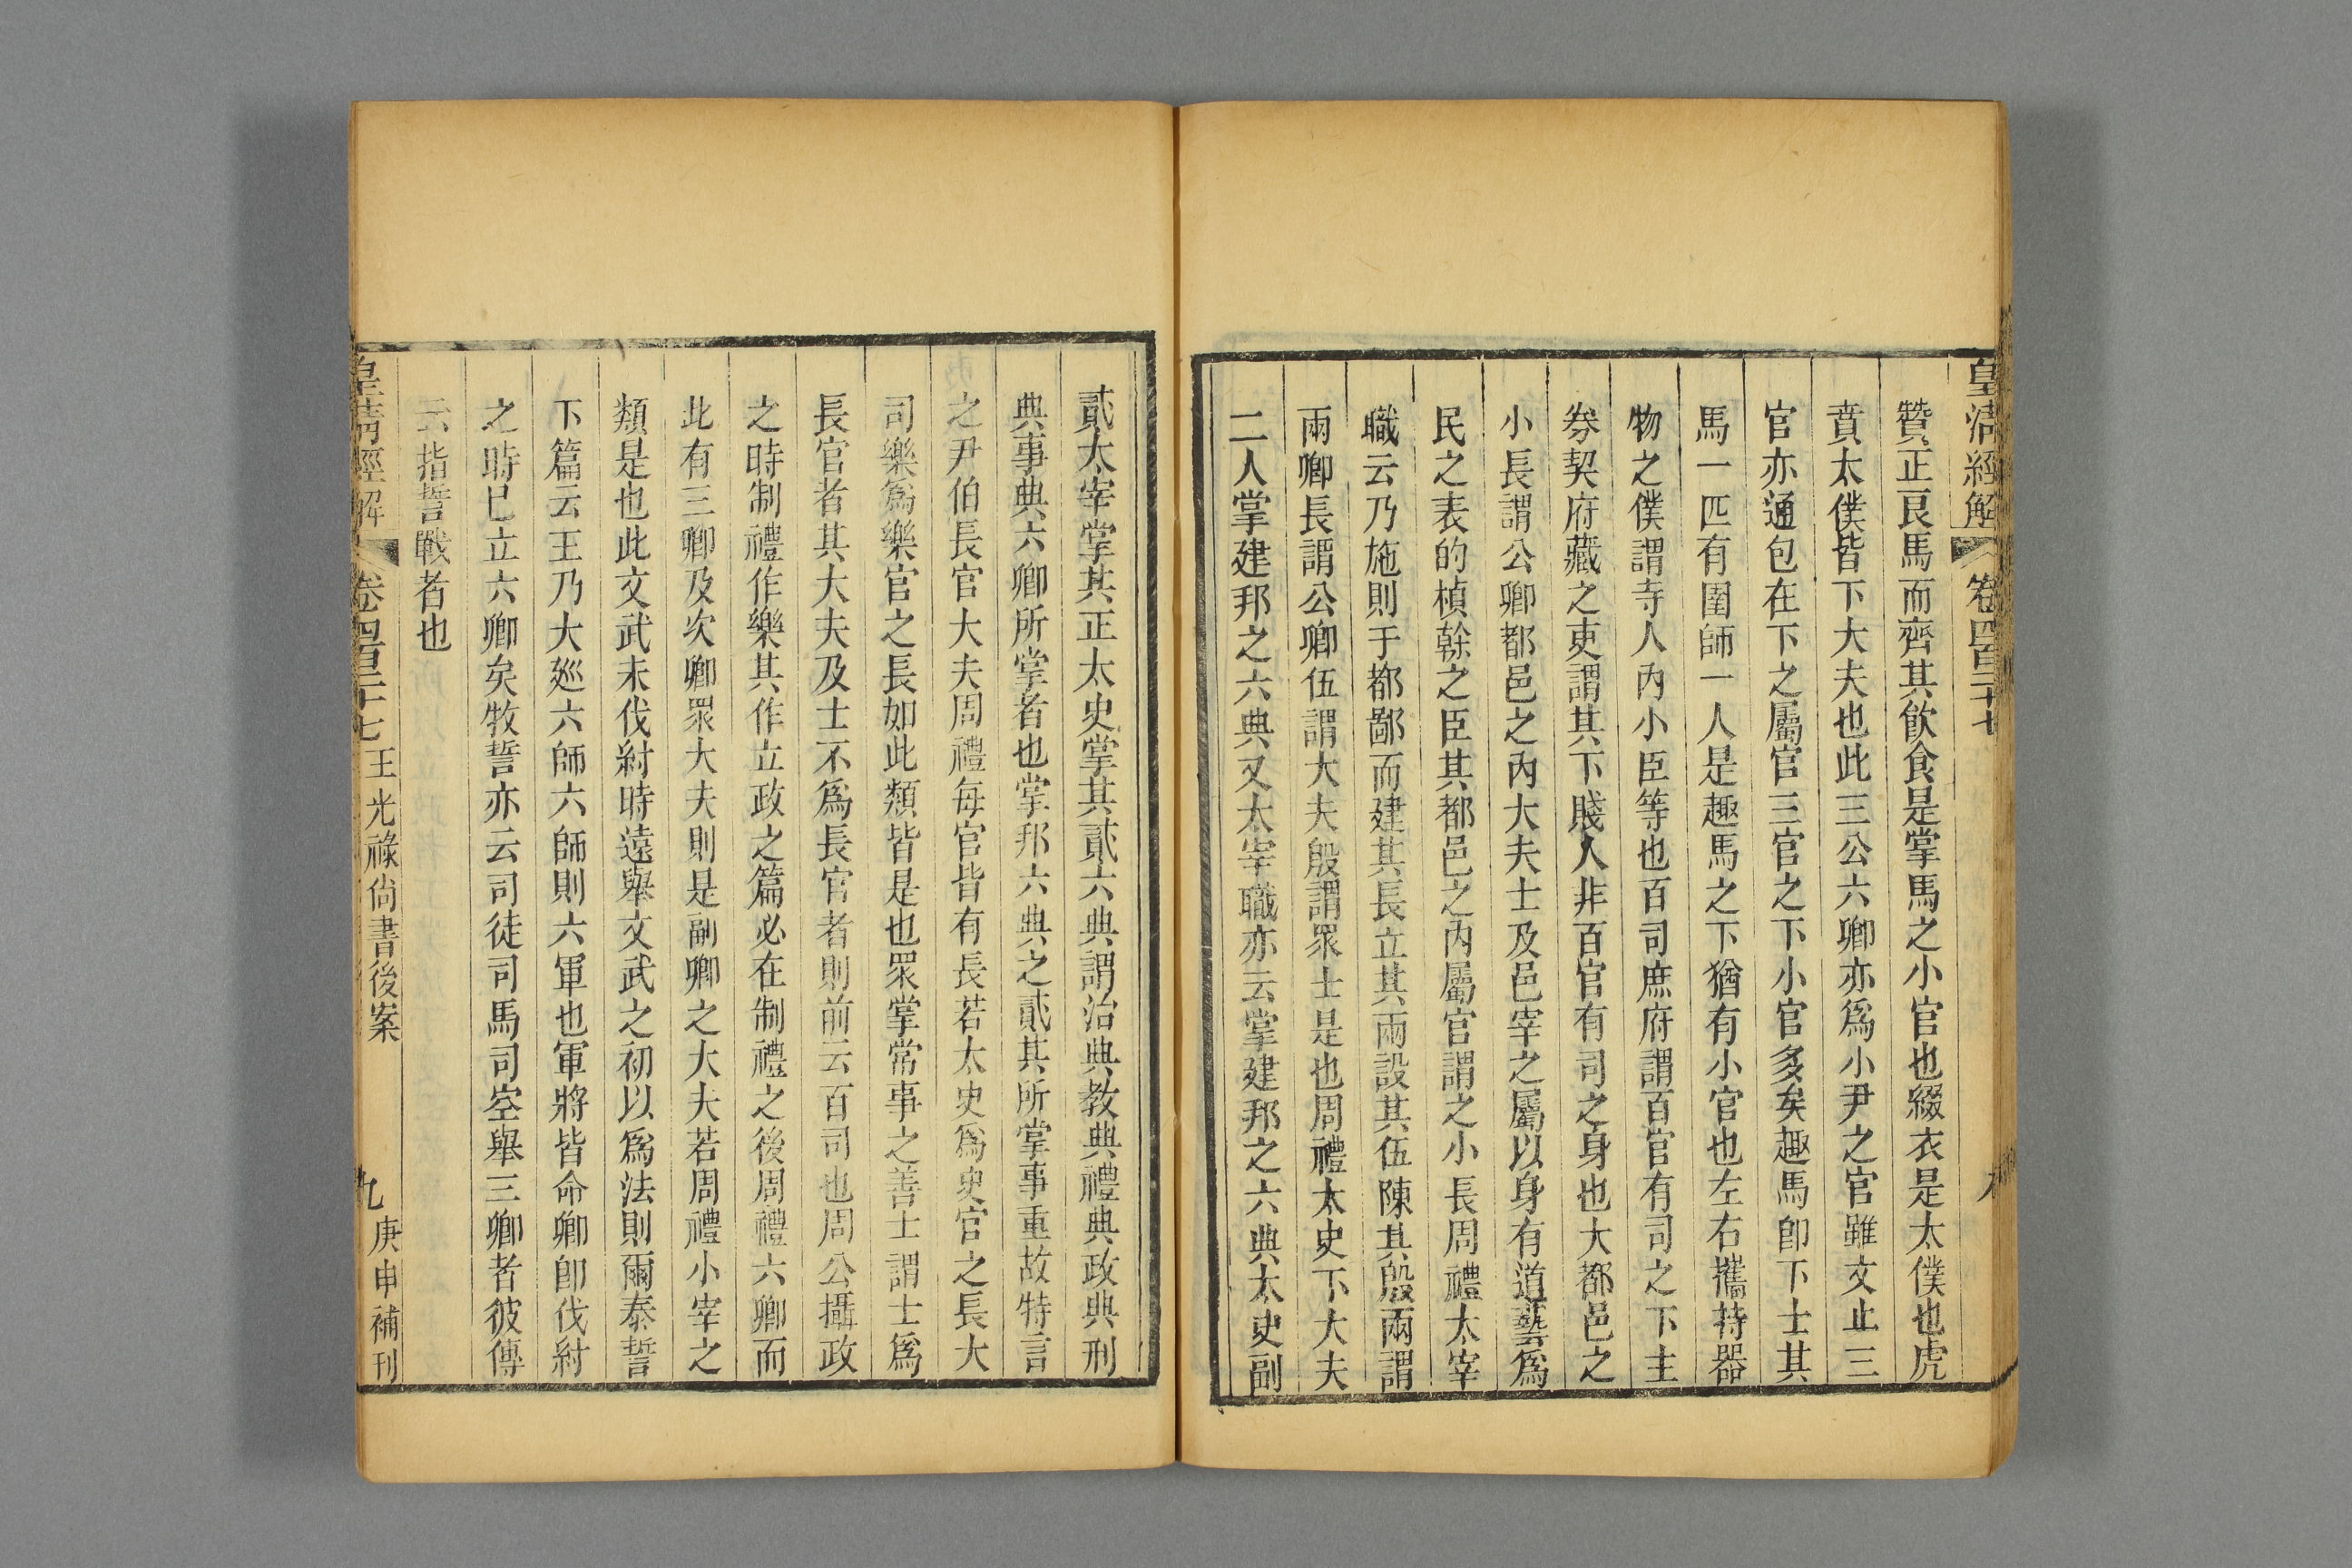 皇清經解
卷四百二十七
贊正良馬而齊其飲食是掌馬之小官也綴衣是太僕也虎
賁太僕皆下大夫也此三公六卿亦爲小尹之官雖文止三
官亦通包在下之屬官三官之下小官多矣趣馬卽下士其
馬一匹有圉師一人是趣馬之下猶有小官也左右攜持器
物之僕謂寺人內小臣等也百司庶府謂百官有司之下主
券契府藏之吏謂其下賤人非百官有司之身也大都邑之
小長謂公卿都邑之內大夫士及邑宰之屬以身有道藝爲
民之表的楨榦之臣其都邑之內屬官謂之小長周禮太宰
職云乃施則于都鄙而建其長立其兩設其伍陳其殷兩謂
兩卿長謂公卿伍謂大夫殷謂眾士是也周禮太史下大夫
二人掌建邦之六典又太宰職亦云掌建邦之六典太史副
貳太宰掌其正太史掌其貳六典謂治典教典禮典政典刑
典事典六卿所掌者也掌邦六典之貳其所掌事重故特言
之尹伯長官大夫周禮每官皆有長若太史爲史官之長大
司樂爲樂官之長如此類皆是也眾掌常事之善士謂士爲
長官者其大夫及士不爲長官者則前云百司也周公攝政
之時制禮作樂其作立政之篇必在制禮之後周禮六卿而
此有三卿及次卿眾大夫則是副卿之大夫若周禮小宰之
類是也此文武未伐紂時遠舉文武之初以爲法則爾泰誓
下篇云王乃大巡六師六師則六軍也軍將皆命卿卽伐紂
之時已立六卿矣牧誓亦云司徒司馬司空舉三卿者彼傳
云指誓戰者也
皇清經解
卷四百二十七
王光祿尙書後案
九
庚申補刊